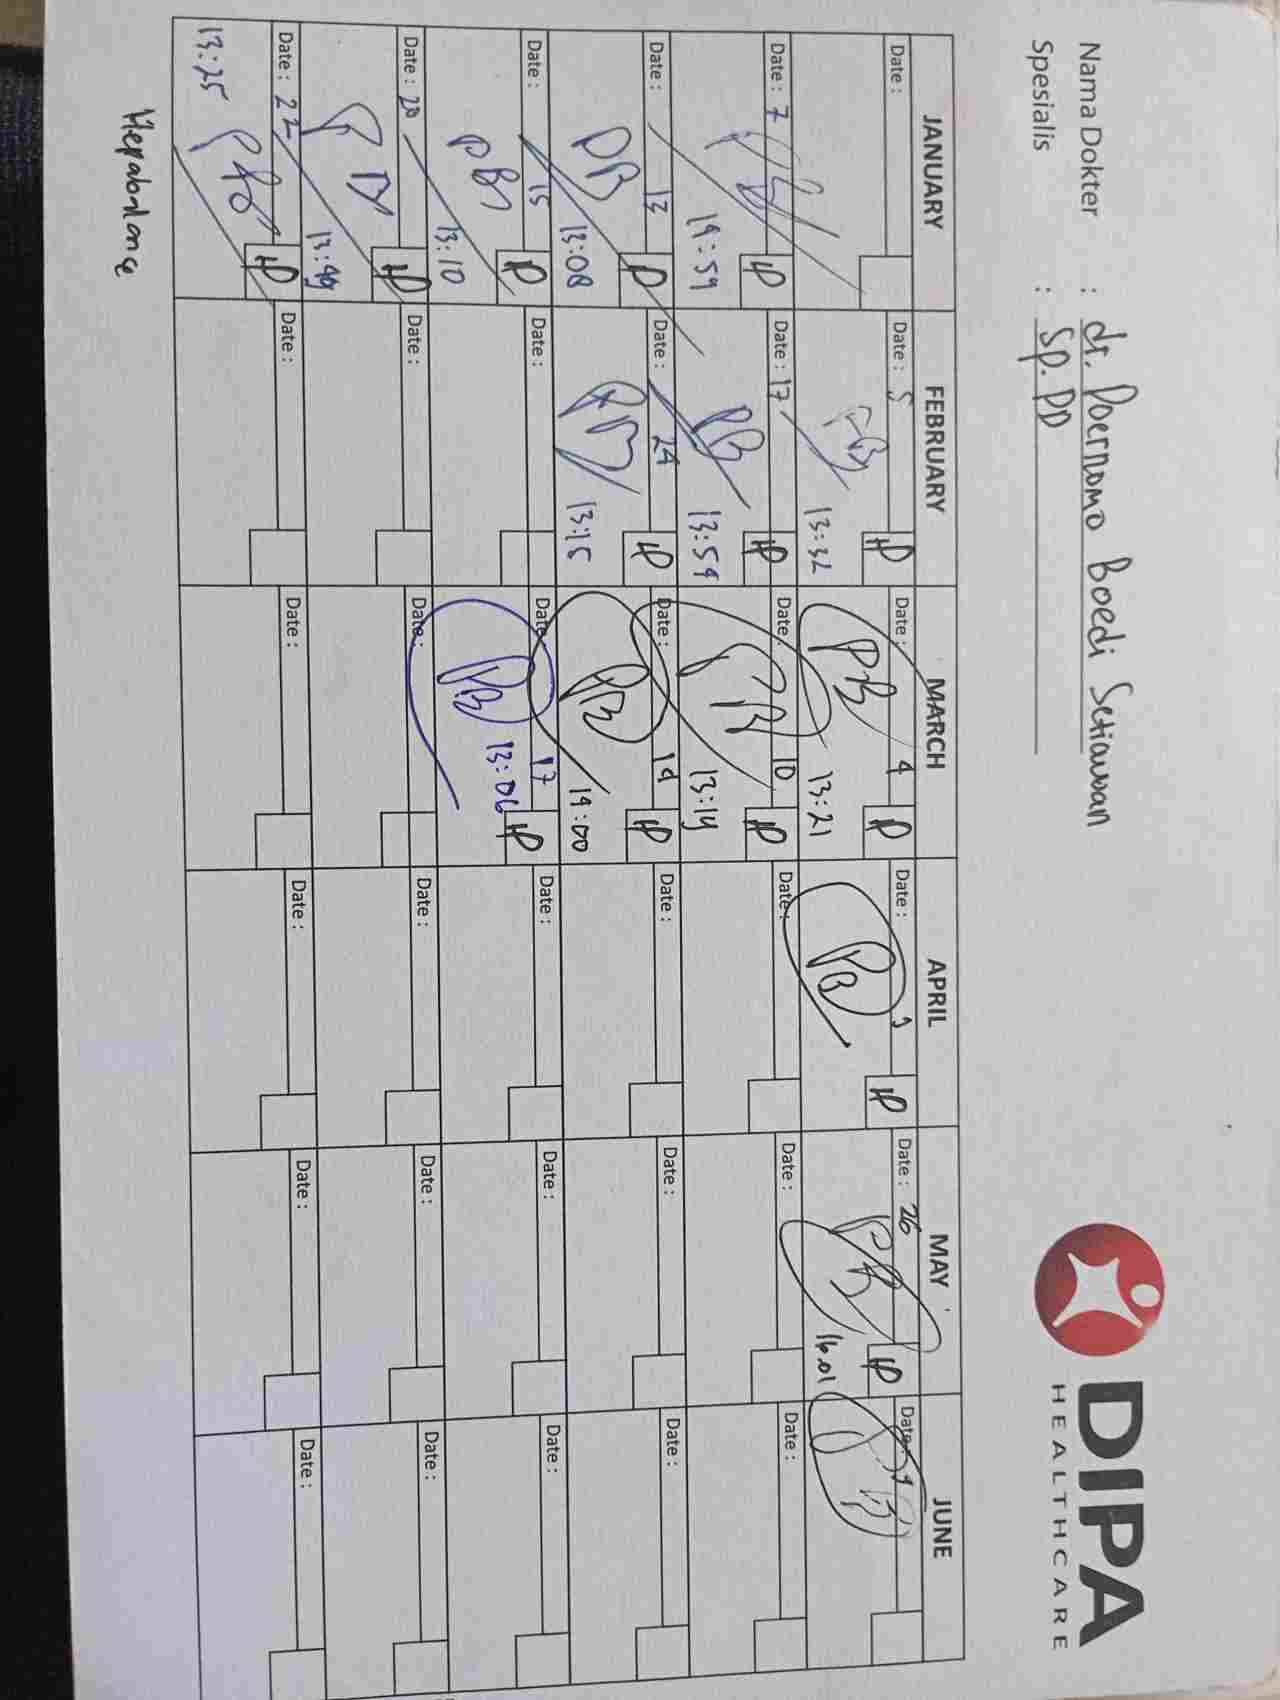 Nama Dokter : dr. Poernomo Boedi Setiawan
Spesialis : Sp. PD
DIPA
HEALTHCARE
JANUARY FEBRUARY MARCH APRIL MAY JUNE
Date : Date : 5 Date : 4 Date : Date : 26 Date :
PB PB PB PB
13:32 13:21 16.01
Date : 7 Date : 17 Date : 10 Date : Date : Date :
PB PB
19:59 13:59 13:19
Date : 13 Date : 24 Date : 19 Date : Date : Date :
PB PB PB
13:08 13:15 19:00
Date : 15 Date : Date : 17 Date : Date : Date :
PB PB
13:10 13:06
Date : 20 Date : Date : Date : Date : Date :
PB
13:49
Date : 22 Date : Date : Date : Date : Date :
13:25
Hepabalance